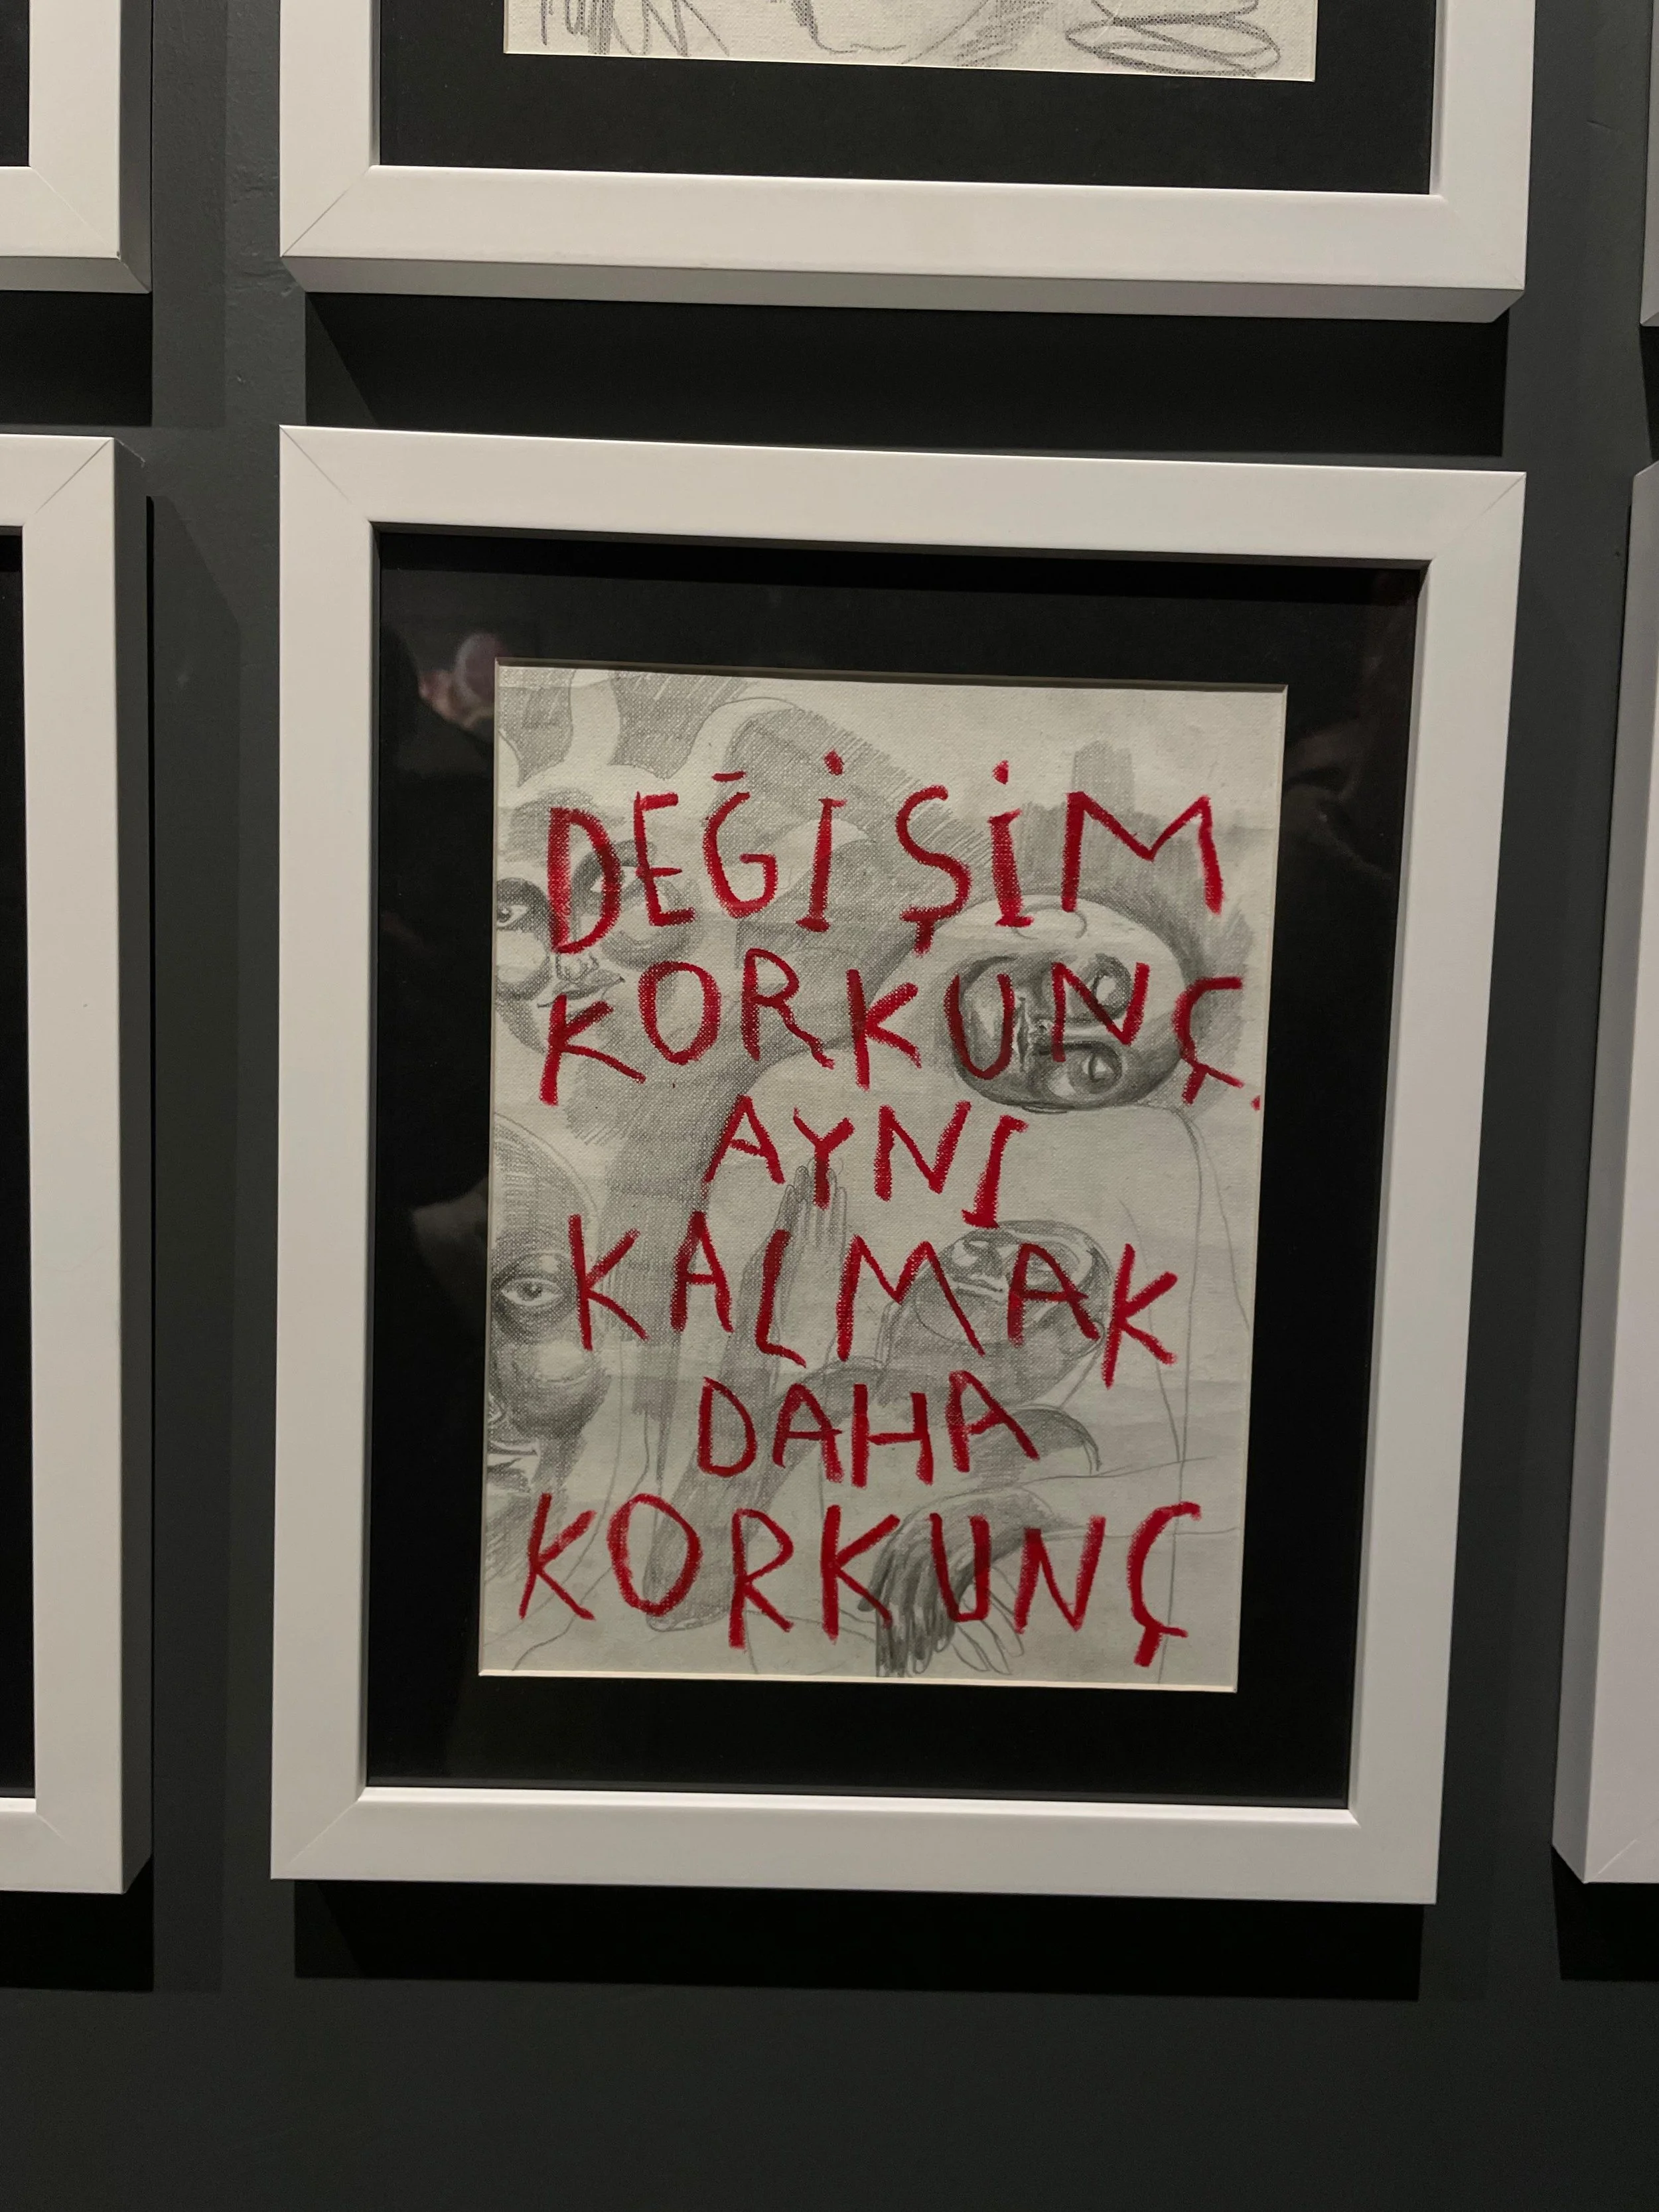 DEĞİŞİM
KORKUNÇ.
AYNI
KALMAK
DAHA
KORKUNÇ